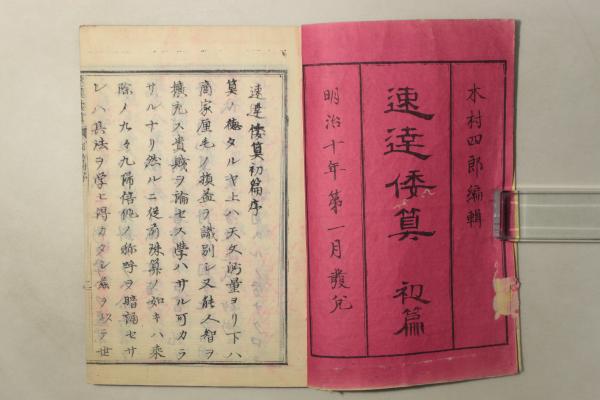 木村四郎編輯
速達倭算 初篇
明治十年第一月發兌
速達倭算初篇序
算ノ徳タルヤ上ハ天文測量ヨリ下ハ
商家厘毛ノ損益ヲ識別シ又能人智ヲ
擴充ス貴賤ヲ論セス学ハサル可カラ
サルナリ然ルニ從前珠算ノ如キハ乗
除ノ九々九歸倍他ノ称呼ヲ暗誦セサ
レハ其法ヲ学ヒ得カタシ茲ヲ以テ世